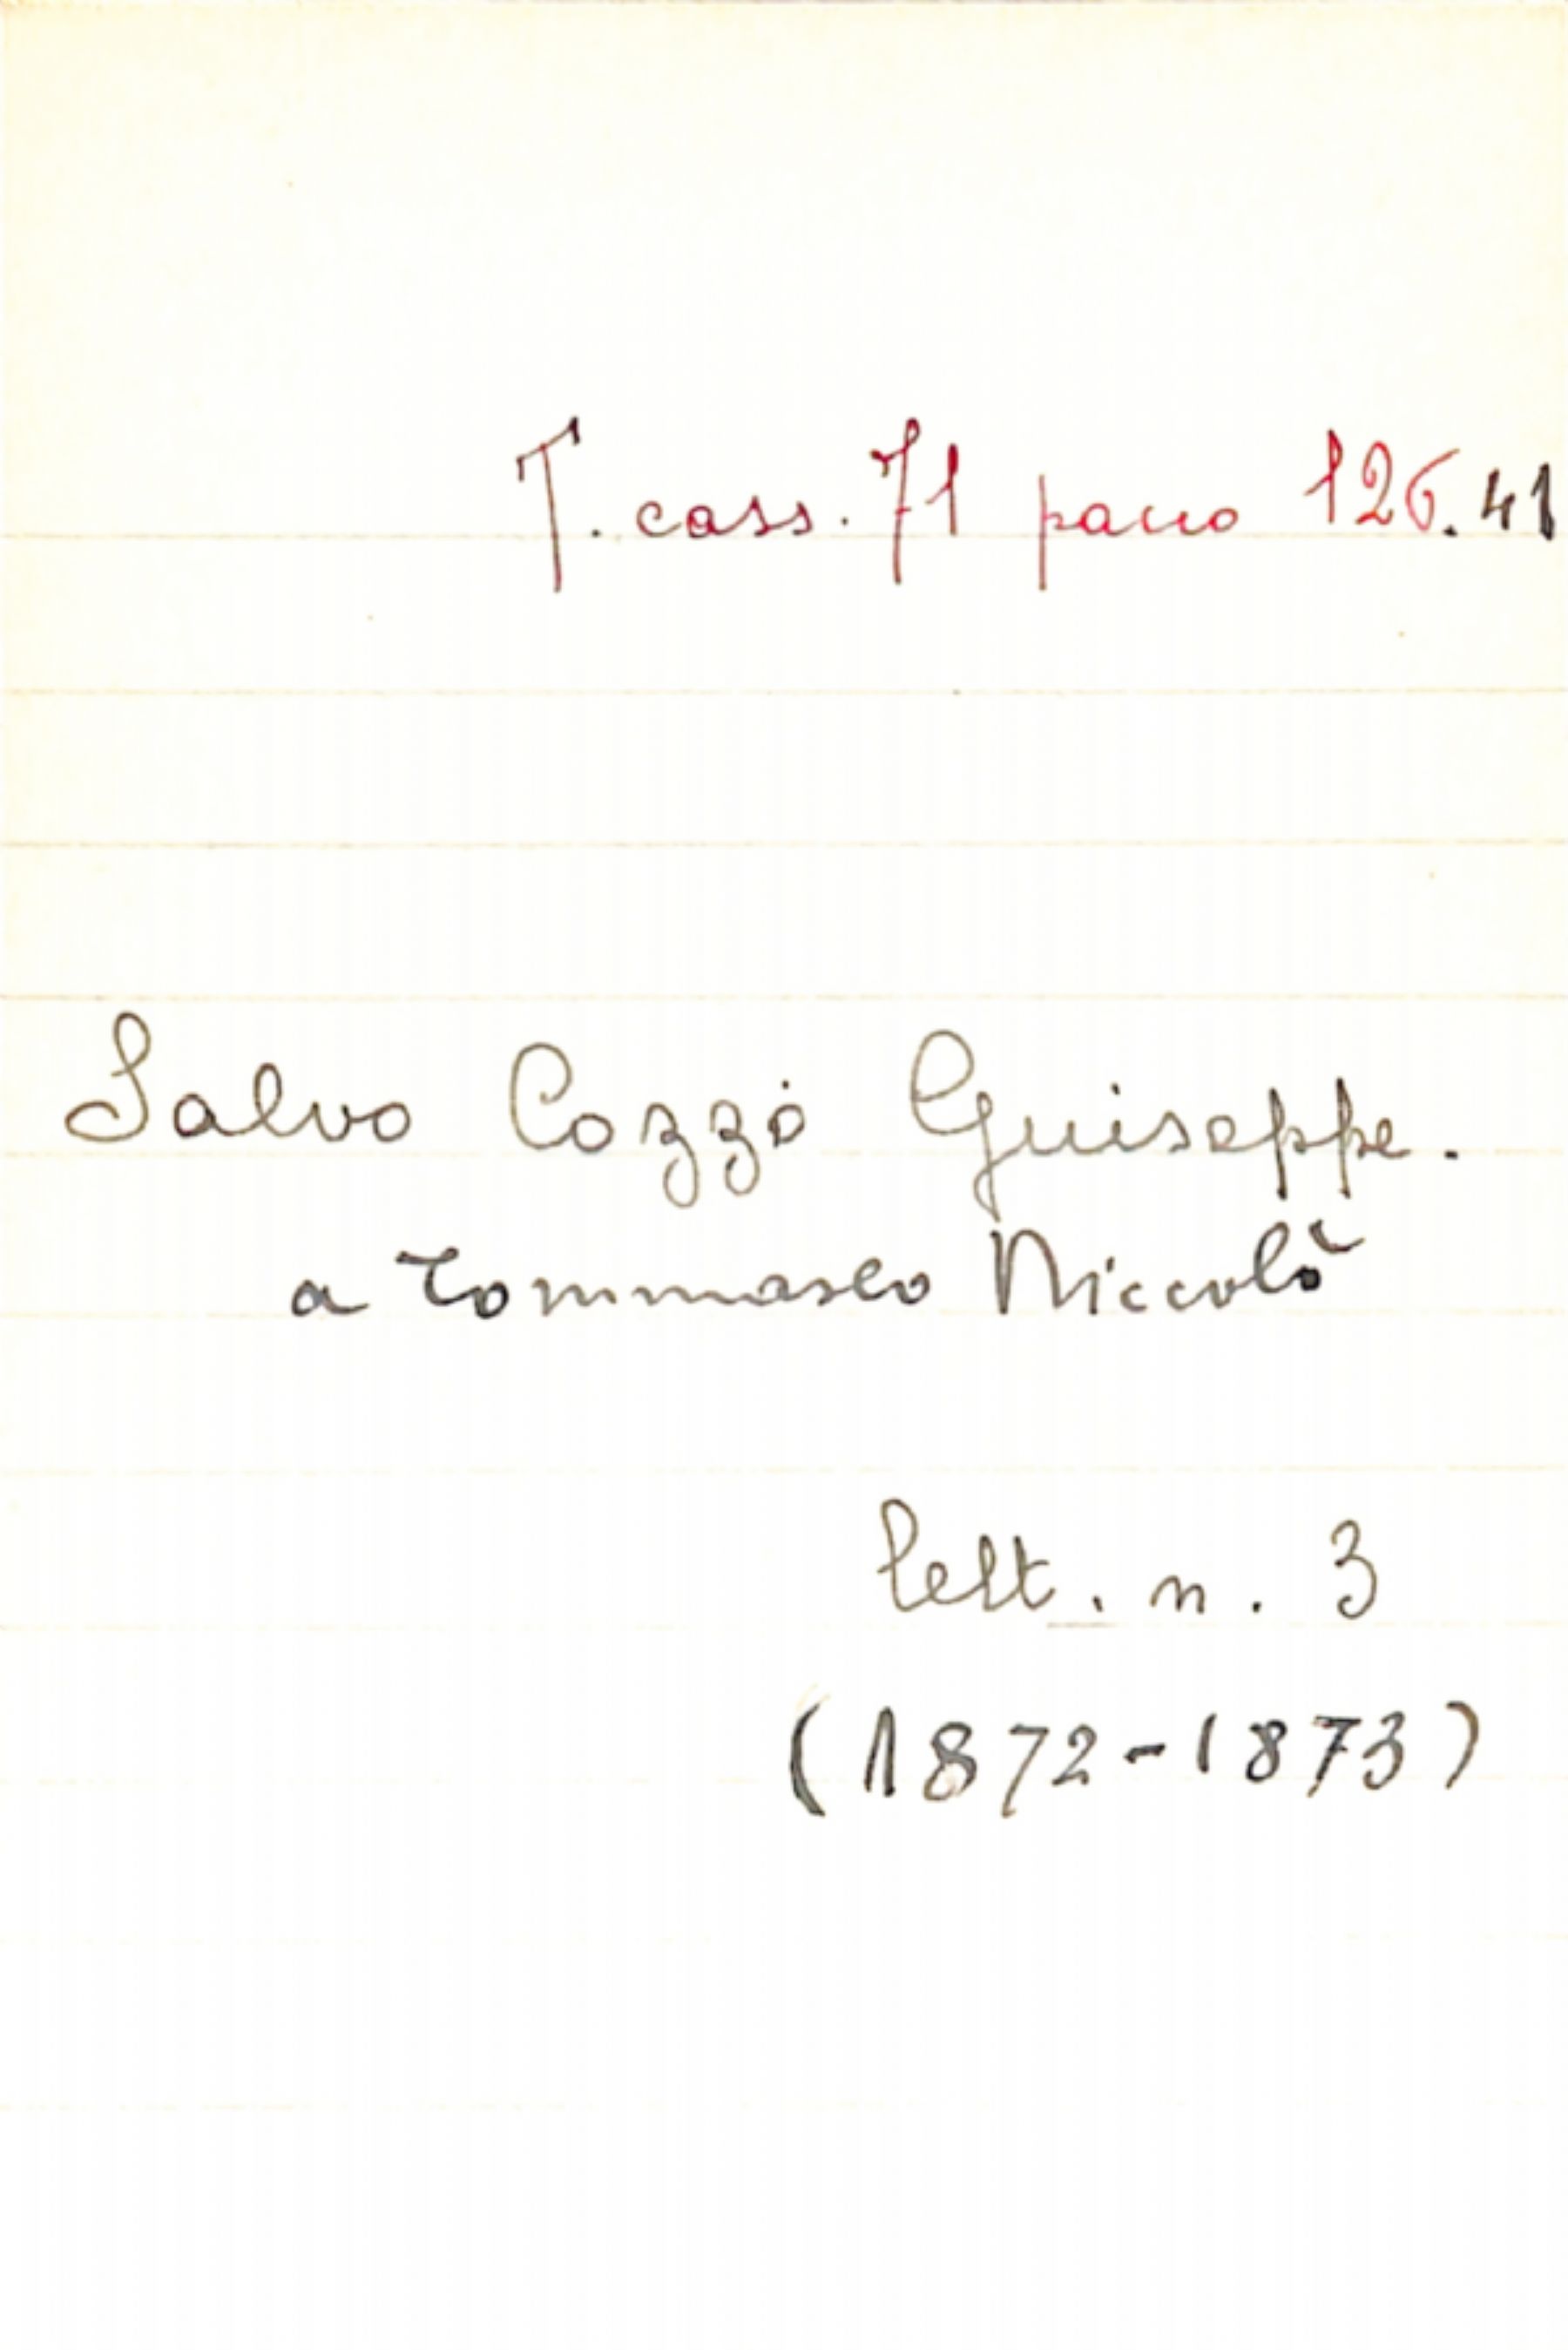 T. cass. 71 pacco 126.41
Salvo Cozzo Giuseppe.
a Tommaseo Niccolò
lett. n. 3
(1872-1873)